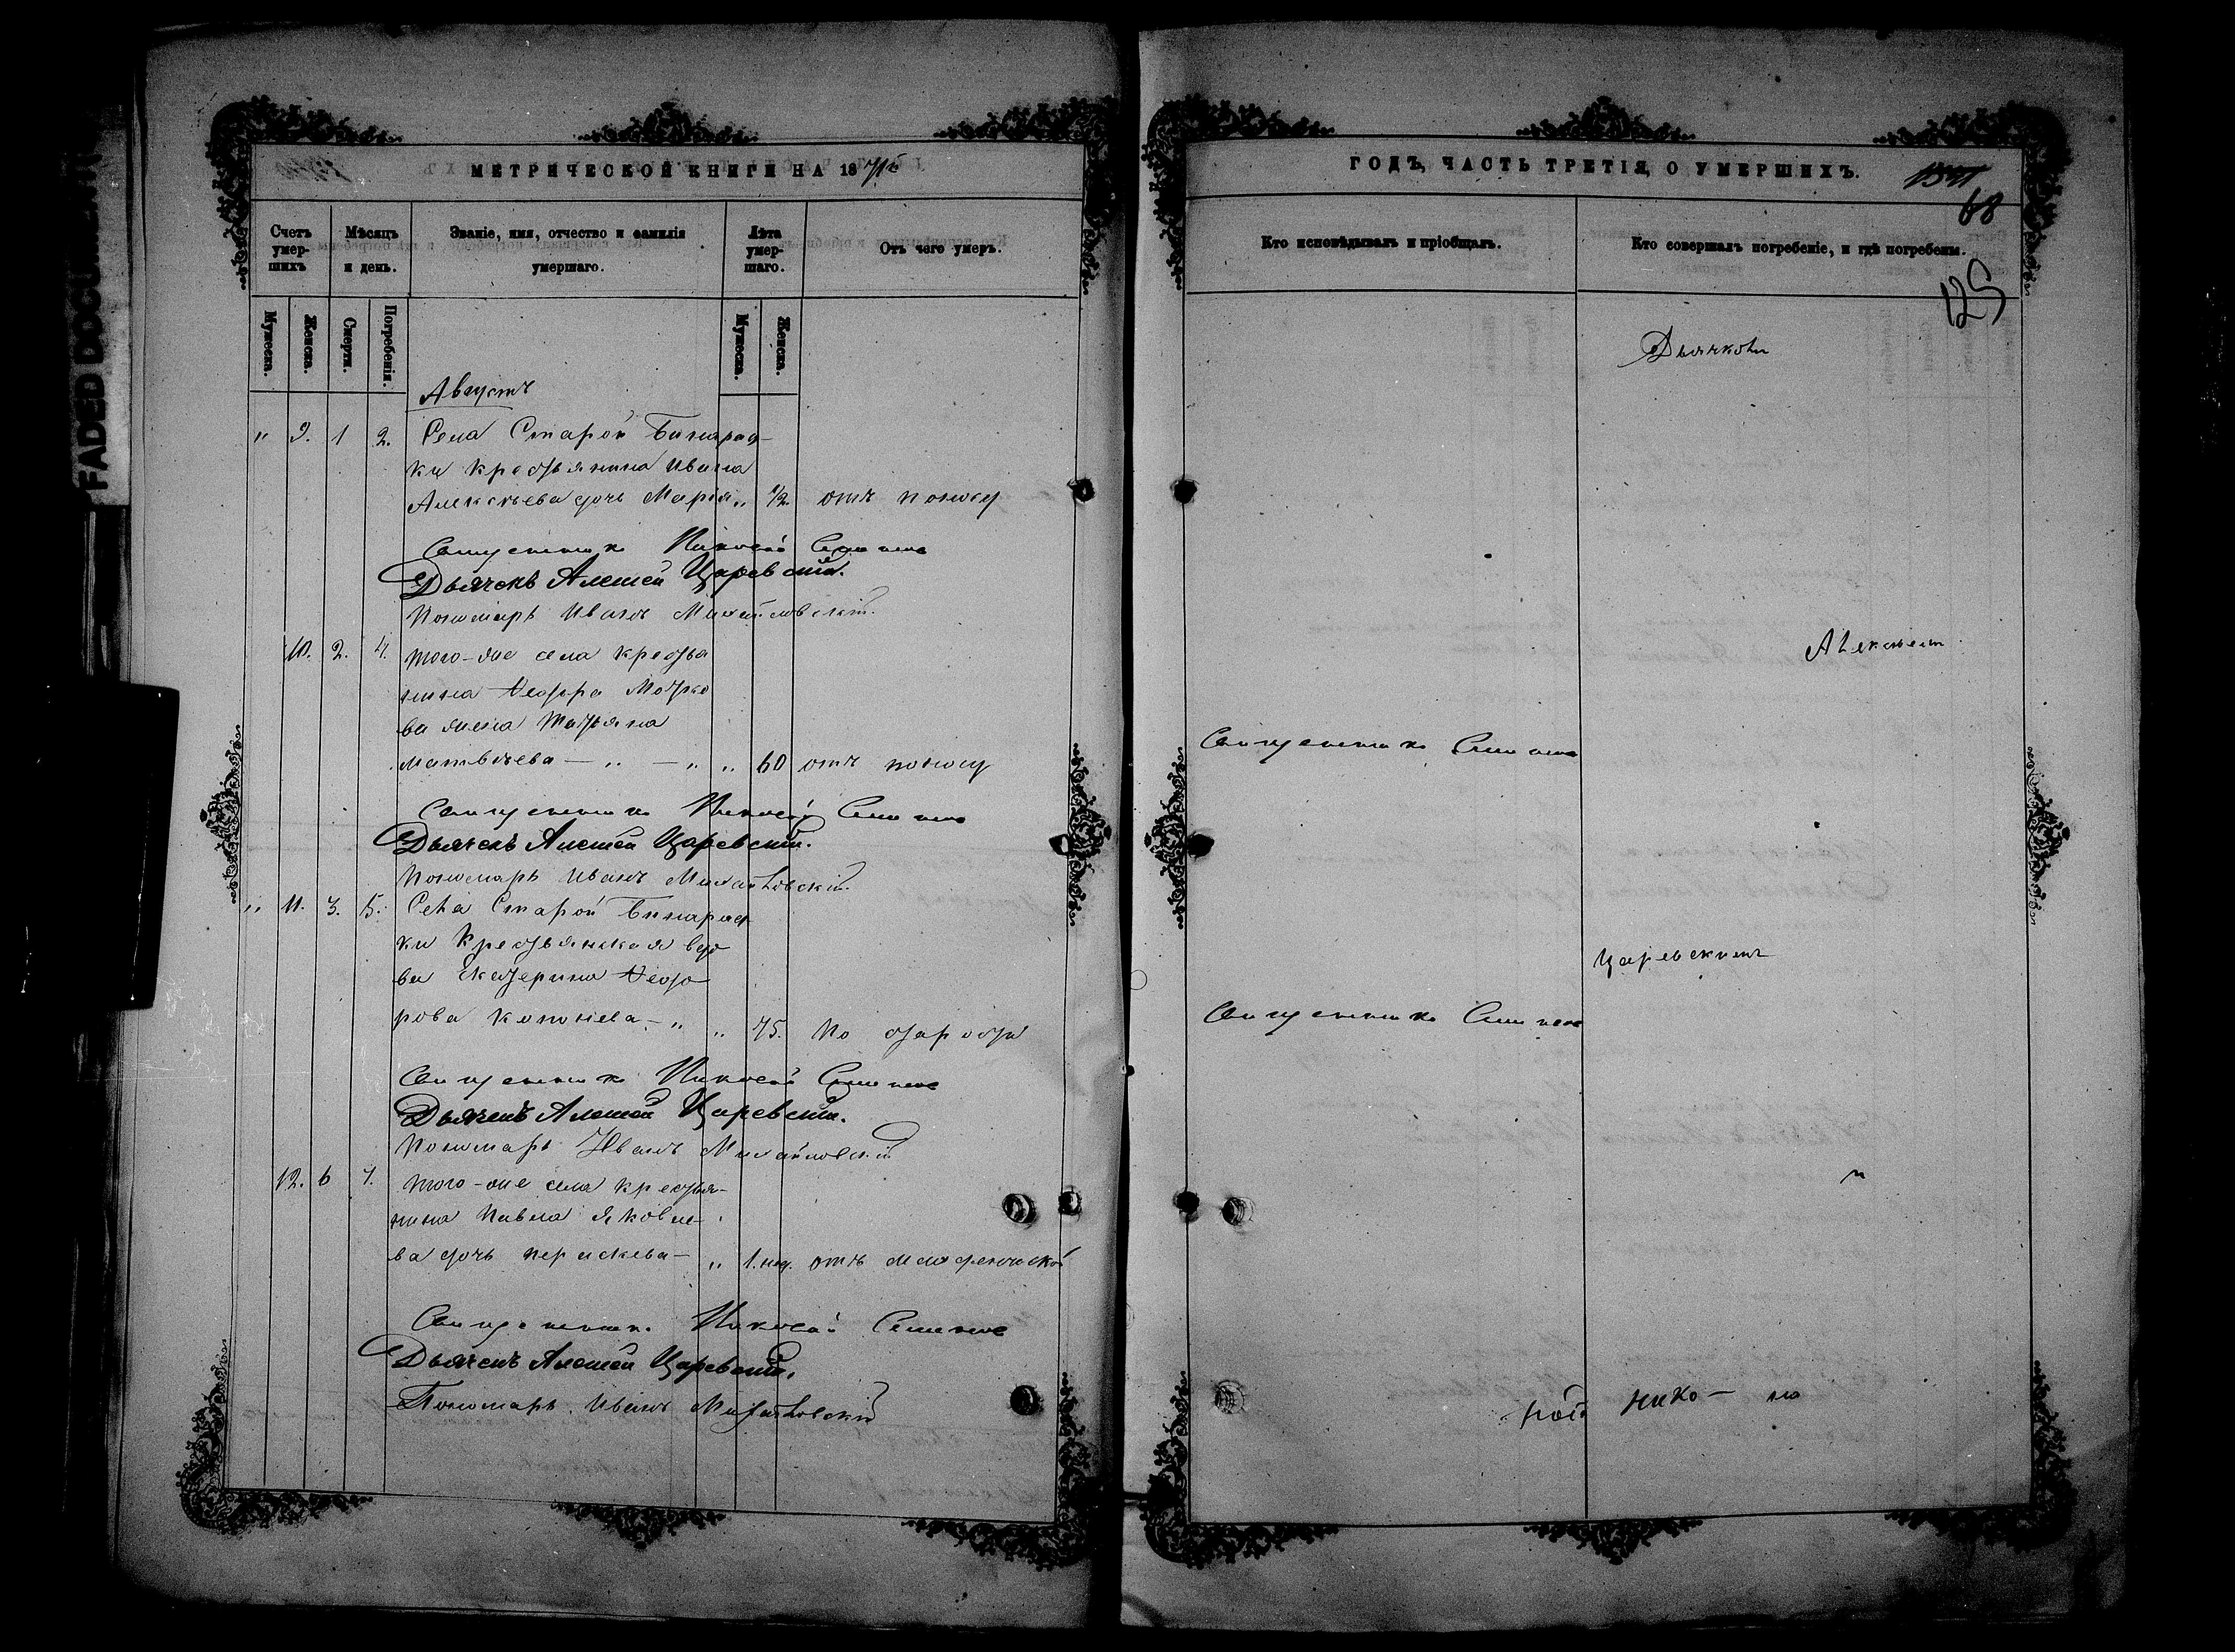 FADED DOCUMENT
МЕТРИЧЕСКОЙ КНИГИ НА 1871й
Счетъ умер-шихъ
Мѣсяцъ и день.
Званіе, имя, отчество и фамилія умершаго.
Лѣта умер-шаго.
Отъ чего умеръ.
Мужеска.
Женска.
Смерти.
Погребенія.
Мужеска.
Женска.
Августъ
" 9. 1 2. Села Старой Бинарад-
ки крестьянина Ивана
Алексѣева дочь Марія " 1/2. отъ поносу
Священникъ Николай
Дьячекъ Алексѣй Царевскій.
Пономарь Иванъ Михайловскій.
10. 2. 4. того-же села крестья
нина Ѳеодора
ва жена Татьяна
Матвѣева — " — " " 60 отъ поносу
Священникъ Николай
Дьячекъ Алексѣй Царевскій.
Пономарь Иванъ Михайловскій.
" 11. 3. 5. Села Старой Бинарад-
ки Крестьянская вдо
ва Екатерина Ѳеодо
рова — " " 75. по старости
Священникъ Николай
Дьячекъ Алексѣй Царевскій.
Пономарь Иванъ Михайловскій
12. 6 7. того-же села крестья-
нина Павла Яковле-
ва дочь Параскева — " 1. нед. отъ младенческой
Священникъ Николай
Дьячекъ Алексѣй Царевскій.
Пономарь Иванъ Михайловскій
ГОДЪ, ЧАСТЬ ТРЕТІЯ, О УМЕРШИХЪ.
68
Кто исповѣдывалъ и пріобщалъ.
Кто совершалъ погребеніе, и гдѣ погребены.
125
Дьячковъ
Алексѣемъ
Священникъ
Царевскимъ
Священникъ